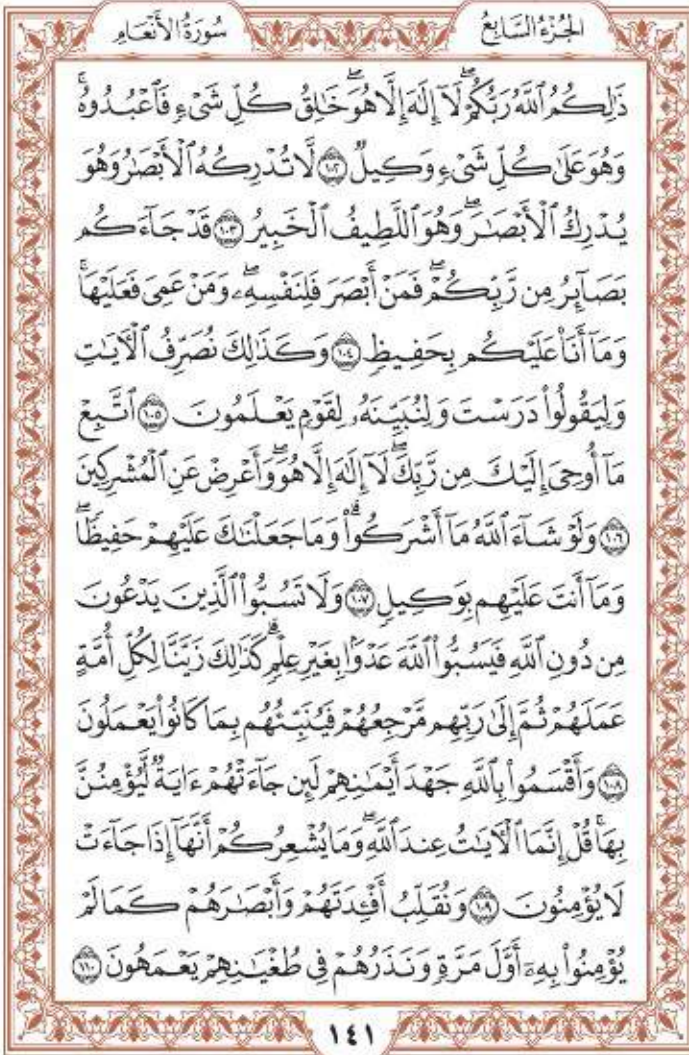 سُورَةُ الأَنْعَامِ
الجُزْءُ السَّابِعُ
ذَٰلِكُمُ ٱللَّهُ رَبُّكُمْۖ لَآ إِلَٰهَ إِلَّا هُوَۖ خَٰلِقُ كُلِّ شَىْءٍ فَٱعْبُدُوهُۚ
وَهُوَ عَلَىٰ كُلِّ شَىْءٍ وَكِيلٌ ١٠٢ لَّا تُدْرِكُهُ ٱلْأَبْصَٰرُ وَهُوَ
يُدْرِكُ ٱلْأَبْصَٰرَۖ وَهُوَ ٱللَّطِيفُ ٱلْخَبِيرُ ١٠٣ قَدْ جَآءَكُم
بَصَآئِرُ مِن رَّبِّكُمْۖ فَمَنْ أَبْصَرَ فَلِنَفْسِهِۦۖ وَمَنْ عَمِىَ فَعَلَيْهَاۚ
وَمَآ أَنَا۠ عَلَيْكُم بِحَفِيظٍ ١٠٤ وَكَذَٰلِكَ نُصَرِّفُ ٱلْءَايَٰتِ
وَلِيَقُولُوا۟ دَرَسْتَ وَلِنُبَيِّنَهُۥ لِقَوْمٍ يَعْلَمُونَ ١٠٥ ٱتَّبِعْ
مَآ أُوحِىَ إِلَيْكَ مِن رَّبِّكَۖ لَآ إِلَٰهَ إِلَّا هُوَۖ وَأَعْرِضْ عَنِ ٱلْمُشْرِكِينَ
١٠٦ وَلَوْ شَآءَ ٱللَّهُ مَآ أَشْرَكُوا۟ۗ وَمَا جَعَلْنَٰكَ عَلَيْهِمْ حَفِيظًاۖ
وَمَآ أَنتَ عَلَيْهِم بِوَكِيلٍ ١٠٧ وَلَا تَسُبُّوا۟ ٱلَّذِينَ يَدْعُونَ
مِن دُونِ ٱللَّهِ فَيَسُبُّوا۟ ٱللَّهَ عَدْوًۢا بِغَيْرِ عِلْمٍۗ كَذَٰلِكَ زَيَّنَّا لِكُلِّ أُمَّةٍ
عَمَلَهُمْ ثُمَّ إِلَىٰ رَبِّهِم مَّرْجِعُهُمْ فَيُنَبِّئُهُم بِمَا كَانُوا۟ يَعْمَلُونَ
١٠٨ وَأَقْسَمُوا۟ بِٱللَّهِ جَهْدَ أَيْمَٰنِهِمْ لَئِن جَآءَتْهُمْ ءَايَةٌ لَّيُؤْمِنُنَّ
بِهَاۚ قُلْ إِنَّمَا ٱلْءَايَٰتُ عِندَ ٱللَّهِۖ وَمَا يُشْعِرُكُمْ أَنَّهَآ إِذَا جَآءَتْ
لَا يُؤْمِنُونَ ١٠٩ وَنُقَلِّبُ أَفْـِٔدَتَهُمْ وَأَبْصَٰرَهُمْ كَمَا لَمْ
يُؤْمِنُوا۟ بِهِۦٓ أَوَّلَ مَرَّةٍ وَنَذَرُهُمْ فِى طُغْيَٰنِهِمْ يَعْمَهُونَ ١١٠
١٤١